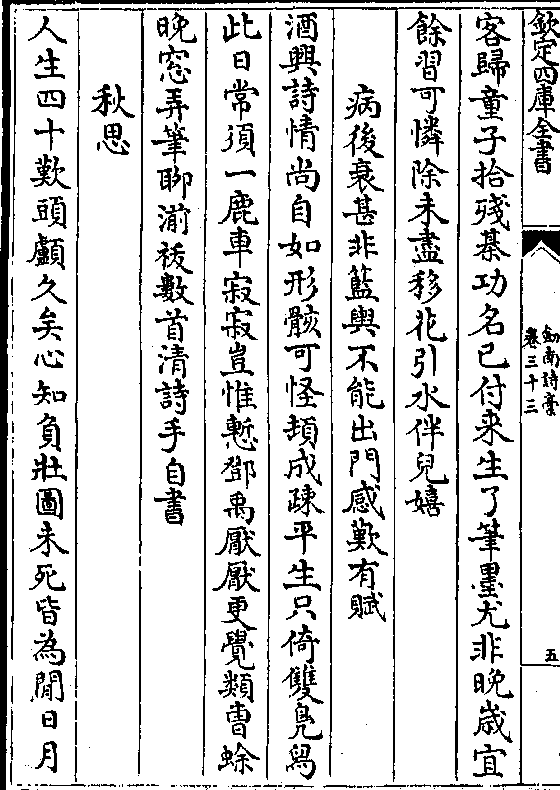 欽定四庫全書
劒南詩藁
卷三十三
五
客歸童子拾殘棊功名已付来生了筆墨尤非晚歲宜
餘習可憐除未盡移花引水伴兒嬉
病後衰甚非籃輿不能出門感歎有賦
酒興詩情尚自如形骸可怪頓成疎平生只倚雙鳬舄
此日常須一鹿車寂寂豈惟慙鄧禹厭厭更覺類曹蜍
晚窓弄筆聊湔祓數首清詩手自書
秋思
人生四十歎頭顱久矣心知負壯圖未死皆為閒日月